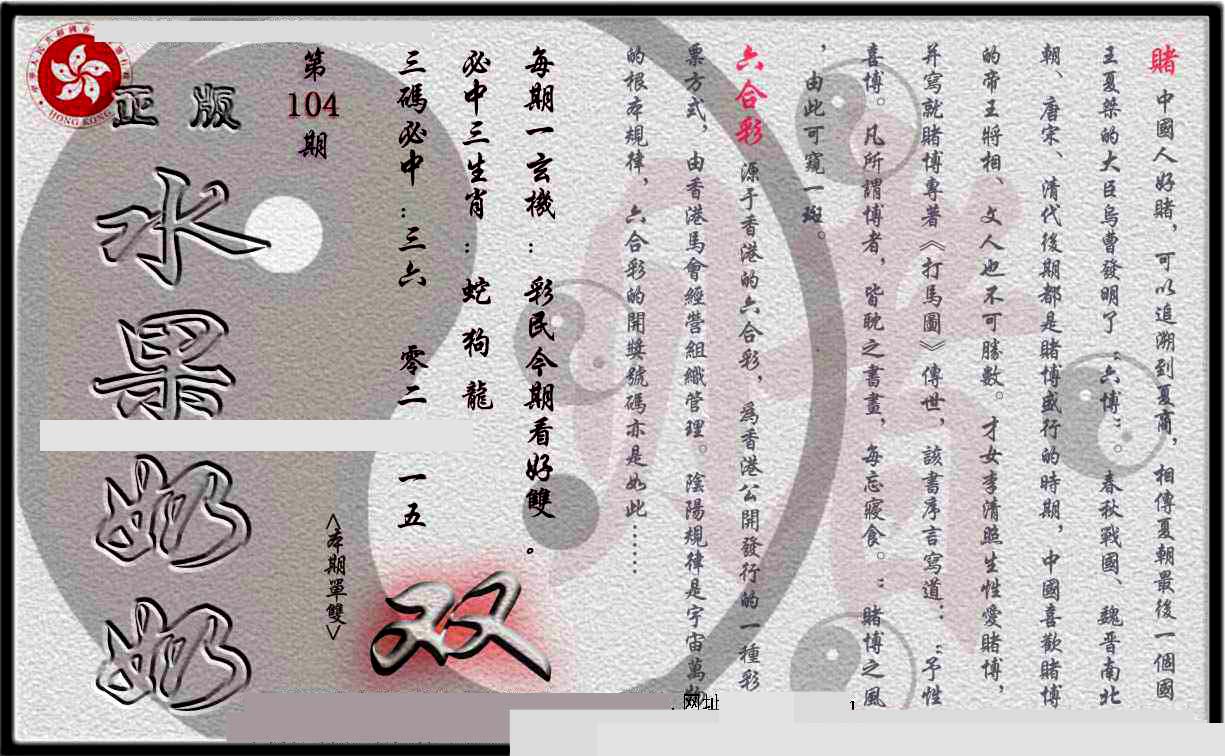 賭 中國人好賭，可以追溯到夏商，相傳夏朝最後一個國
王夏桀的大臣烏曹發明了“六博”。春秋戰國、魏晋南北
朝、唐宋、清代後期都是賭博盛行的時期，中國喜歡賭博
的帝王將相、文人也不可勝數。才女李清照生性愛賭博，
并寫就賭博專著《打馬圖》傳世，該書序言寫道：“予性
喜博。凡所謂博者，皆耽之書畫，每忘寢食。”賭博之風
，由此可窺一斑。
六合彩 源于香港的六合彩，爲香港公開發行的一種彩
票方式，由香港馬會經營組織管理。陰陽規律是宇宙萬物
的根本規律，六合彩的開獎號碼亦是如此……
每期一玄機：彩民今期看好雙。
必中三生肖：蛇 狗 龍
三碼必中：三六 零二 一五
<本期單雙>
双
第
104
期
正版
水果奶奶
HONG KONG
网址